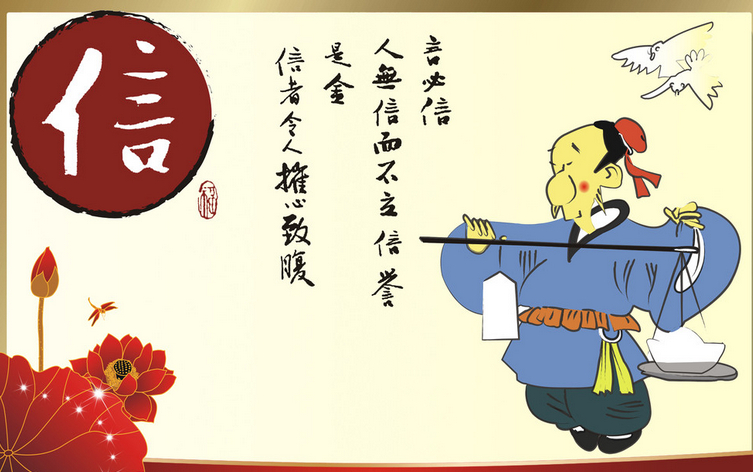 信
言必信
人無信而不立信誉
是金
信者令人擁心致腹